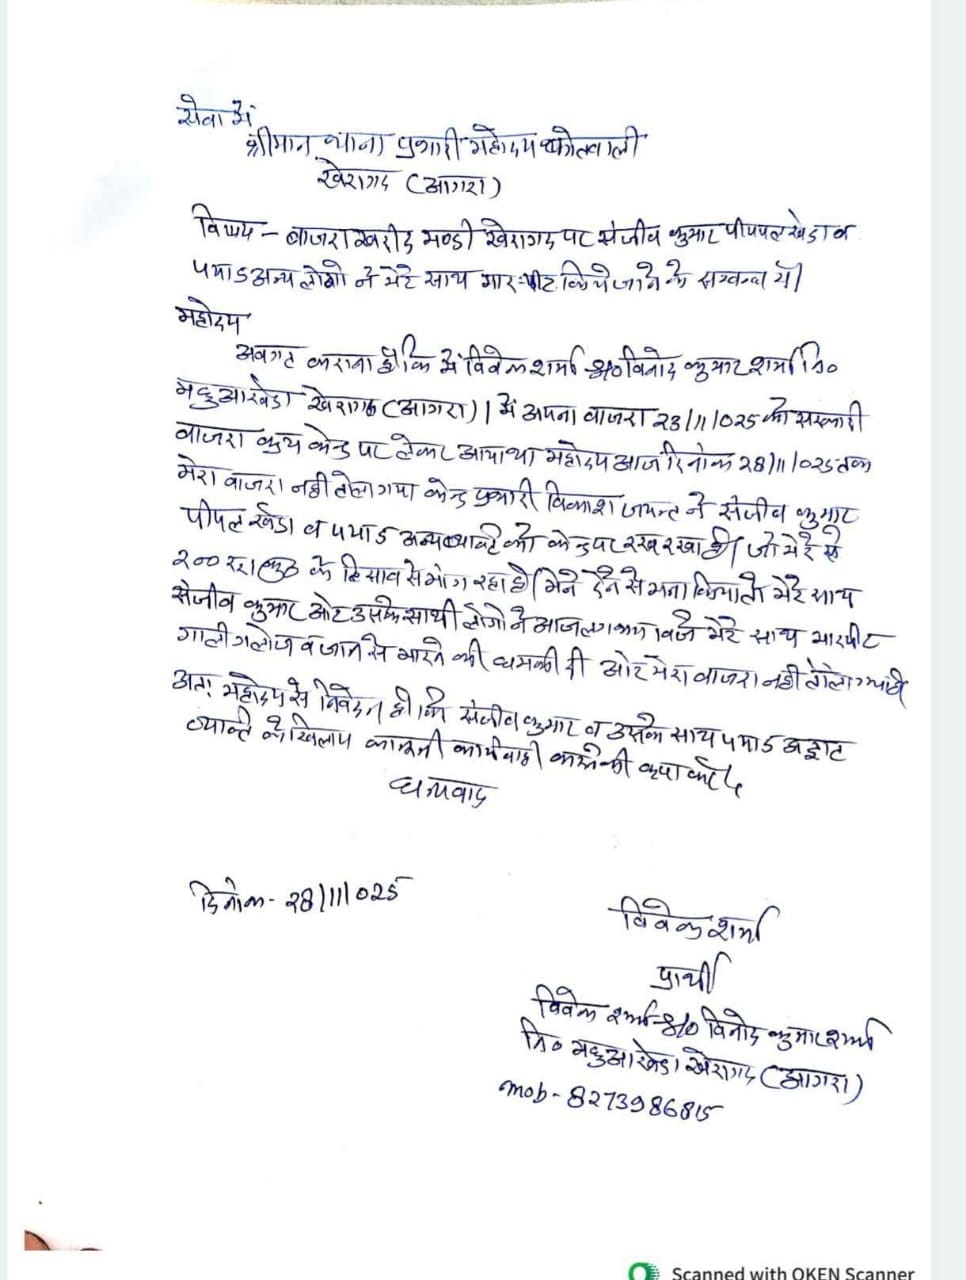 सेवा में
श्रीमान थाना प्रभारी महोदय कोतवाली
खेरागढ (आगरा)
विषय - बाजरा खरीद मण्डी खेरागढ पर संजीव कुमार पीपल खेडा व
अन्य लोगो ने मेरे साथ मार-पीट किये जाने के सम्बन्ध में।
महोदय
अवगत कराना है कि में विवेक शर्मा S/o विनोद कुमार शर्मा नि०
महुआखेडा खेरागढ (आगरा)। में अपना बाजरा 23/11/025 को सरकारी
बाजरा क्रय केन्द्र पर लेकर आया था महोदय आज दिनांक 28/11/025 तक
मेरा बाजरा नही तोला गया केन्द्र प्रभारी विकाश ने संजीव कुमार
पीपल खेडा व अन्य को केन्द्र पर रख रखा है। जो मेरे से
२०० के हिसाब से मांग रहा है। मेने देने से मना किया तो मेरे साथ
संजीव कुमार ओर उसके साथी लोगो ने आज लगभग बजे मेरे साथ मारपीट
गाली गलोज व जान से मारने की धमकी दी ओर मेरा बाजरा नही तोला
अतः महोदय से निवेदन है कि संजीव कुमार व उसके साथ अज्ञात
के खिलाप कानूनी कार्यवाही करने की कृपा करें
धन्यवाद
दिनांक- 28/11/025
विवेक शर्मा
प्रार्थी
विवेक शर्मा S/o विनोद कुमार शर्मा
नि० महुआखेडा खेरागढ (आगरा)
mob- 8273986815
Scanned with OKEN Scanner